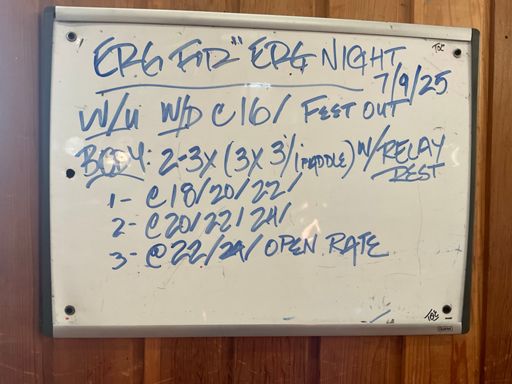 ERG FOR "ERG NIGHT
7/9/25
W/U W/D @16/ FEET OUT
BODY: 2-3X (3X 3'/1' PADDLE) W/RELAY
REST
1- @18/20/22/
2- @20/22/24/
3- @22/24/ OPEN RATE